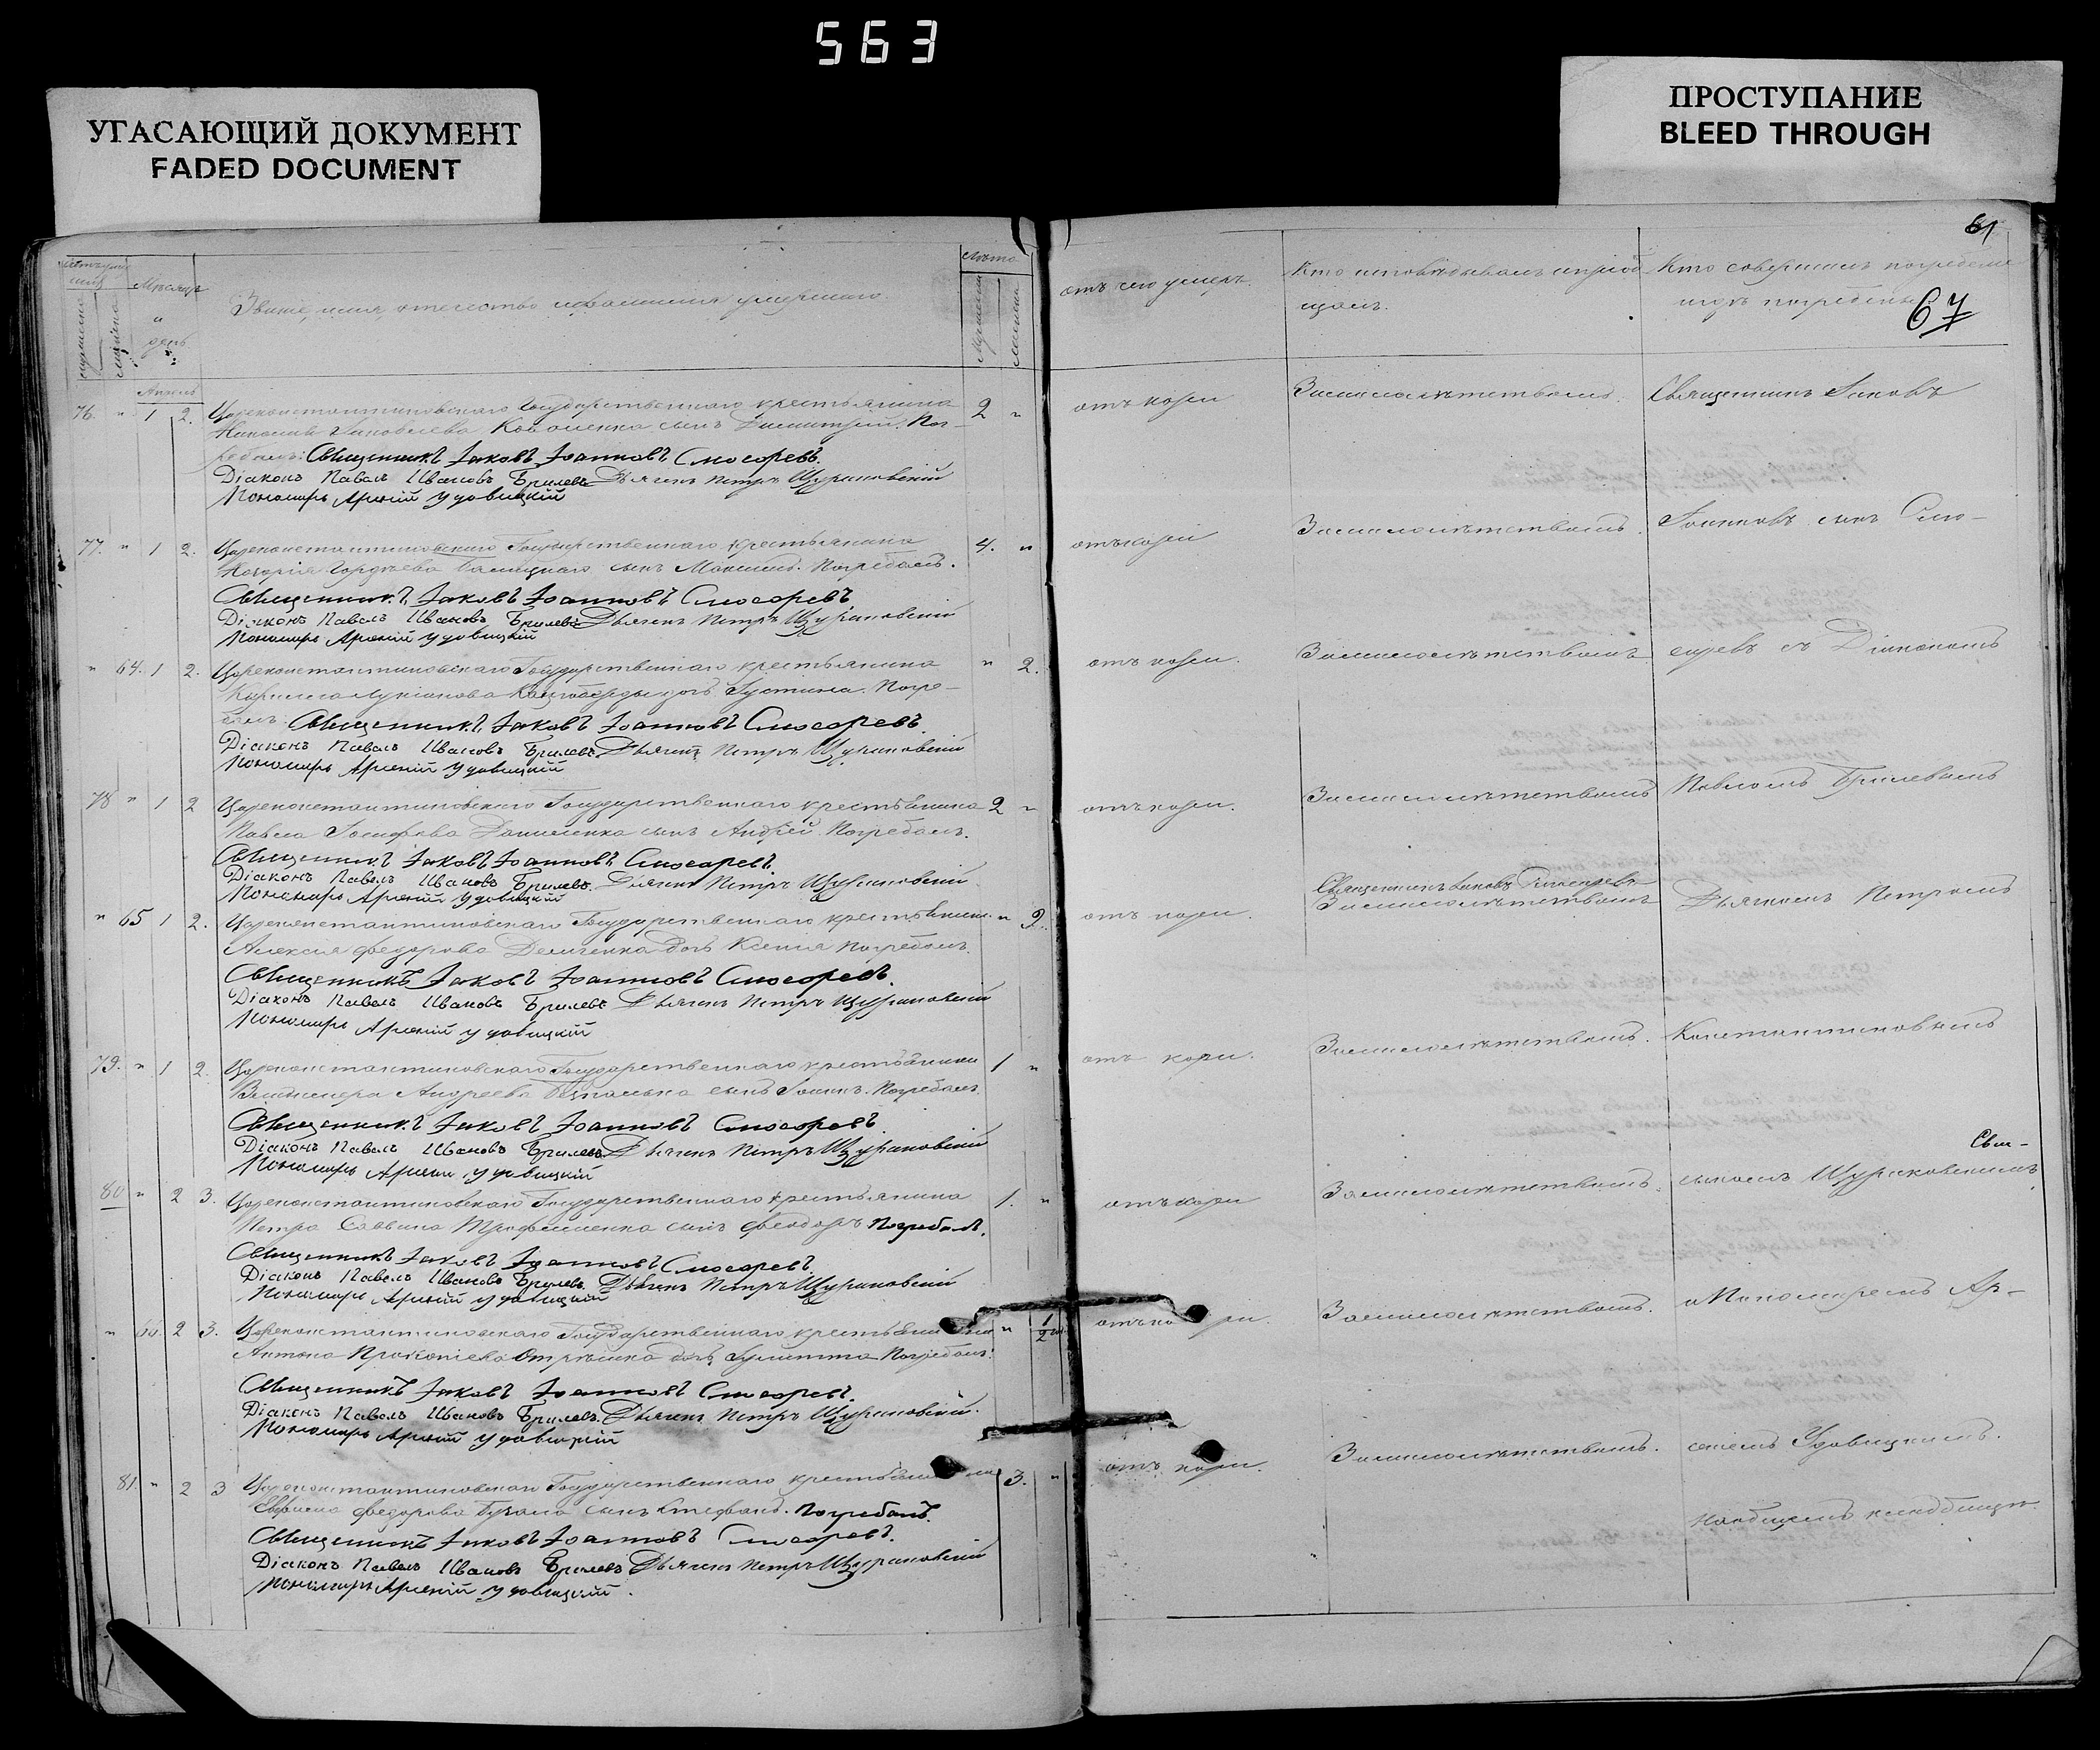 563
УГАСАЮЩИЙ ДОКУМЕНТ
FADED DOCUMENT
ПРОСТУПАНИЕ
BLEED THROUGH
61
67
Мѣсяцъ
и
день
Званіе, имя, отчество и фамилія умершаго
Лѣта
отъ чего умеръ.
Кто исповѣдывалъ и пріоб
щалъ.
Кто совершалъ погребеніе
и гдѣ погребены
Апрѣль
76. " 1 2. Цареконстантиновскаго Государственнаго крестьянина 2 "
Николая Яковлева Коваленка сынъ Димитрій. Пог-
ребалъ: Священникъ Іаковъ Іоанновъ Слюсаревъ.
Діаконъ Павелъ Ивановъ Брилевъ. Дьячекъ Петръ Щураковскій
Пономарь Арсеній Удовицкій
отъ кори
За малолѣтствомъ.
Священникъ Іаковъ
77. " 1 2. Цареконстантиновскаго Государственнаго крестьянина 4. "
Гордѣева сынъ Максимъ. Погребалъ.
Священникъ Іаковъ Іоанновъ Слюсаревъ
Діаконъ Павелъ Ивановъ Брилевъ Дьячекъ Петръ Щураковскій
Пономарь Арсеній Удовицкій
отъ кори
За малолѣтствомъ.
Іоанновъ сынъ Слю-
" 64. 1 2. Цареконстантиновскаго Государственнаго крестьянина " 2.
Лукіанова дочь Іустина. Погре-
балъ. Священникъ Іаковъ Іоанновъ Слюсаревъ.
Діаконъ Павелъ Ивановъ Брилевъ. Дьячекъ Петръ Щураковскій
Пономарь Арсеній Удовицкій
отъ кори.
За малолѣтствомъ
саревъ съ Діакономъ
78 " 1 2 Цареконстантиновскаго Государственнаго крестьянина 2 "
Павла Іосифова Даниленка сынъ Андрей. Погребалъ.
Священникъ Іаковъ Іоанновъ Слюсаревъ.
Діаконъ Павелъ Ивановъ Брилевъ. Дьячекъ Петръ Щураковскій
Пономарь Арсеній Удовицкій
отъ кори.
За малолѣтствомъ
Павломъ Брилевымъ
" 65 1 2. Цареконстантиновскаго Государственнаго крестьянина " 2.
Алексія Федорова Демченка дочь Ксенія Погребалъ.
Священникъ Іаковъ Іоанновъ Слюсаревъ.
Діаконъ Павелъ Ивановъ Брилевъ Дьячекъ Петръ Щураковскій
Пономарь Арсеній Удовицкій
отъ кори.
Священникъ Іаковъ Слюсаревъ
За малолѣтствомъ
Дьячкомъ Петромъ
79. " 1 2. Цареконстантиновскаго Государственнаго крестьянина 1 "
Андреева сынъ Іоаннъ. Погребалъ
Священникъ Іаковъ Іоанновъ Слюсаревъ.
Діаконъ Павелъ Ивановъ Брилевъ Дьячекъ Петръ Щураковскій
Пономарь Арсеній Удовицкій
отъ кори.
За малолѣтствомъ.
Константиновымъ
Сыи-
80 " 2 3. Цареконстантиновскаго Государственнаго крестьянина 1. "
Петра Саввина Трофименка сынъ Феодоръ Погребалъ.
Священникъ Іаковъ Іоанновъ Слюсаревъ.
Діаконъ Павелъ Ивановъ Брилевъ. Дьячекъ Петръ Щураковскій
Пономарь Арсеній Удовицкій
отъ кори
За малолѣтствомъ.
сыномъ Щураковскимъ
" 66. 2 3. Цареконстантиновскаго Государственнаго крестьянина " 1/2
Антона Прокопіева дочь Іулитта Погребалъ.
Священникъ Іаковъ Іоанновъ Слюсаревъ.
Діаконъ Павелъ Ивановъ Брилевъ. Дьячекъ Петръ Щураковскій.
Пономарь Арсеній Удовицкій
отъ кори.
За малолѣтствомъ.
и Пономаремъ Ар-
81. " 2 3 Цареконстантиновскаго Государственнаго крестьянина 3. "
Федорова сынъ Стефанъ. Погребалъ.
Священникъ Іаковъ Іоанновъ Слюсаревъ.
Діаконъ Павелъ Ивановъ Брилевъ Дьячекъ Петръ Щураковскій
Пономарь Арсеній Удовицкій.
отъ кори.
За малолѣтствомъ.
сеніемъ Удовицкимъ.
на общемъ кладбищѣ.